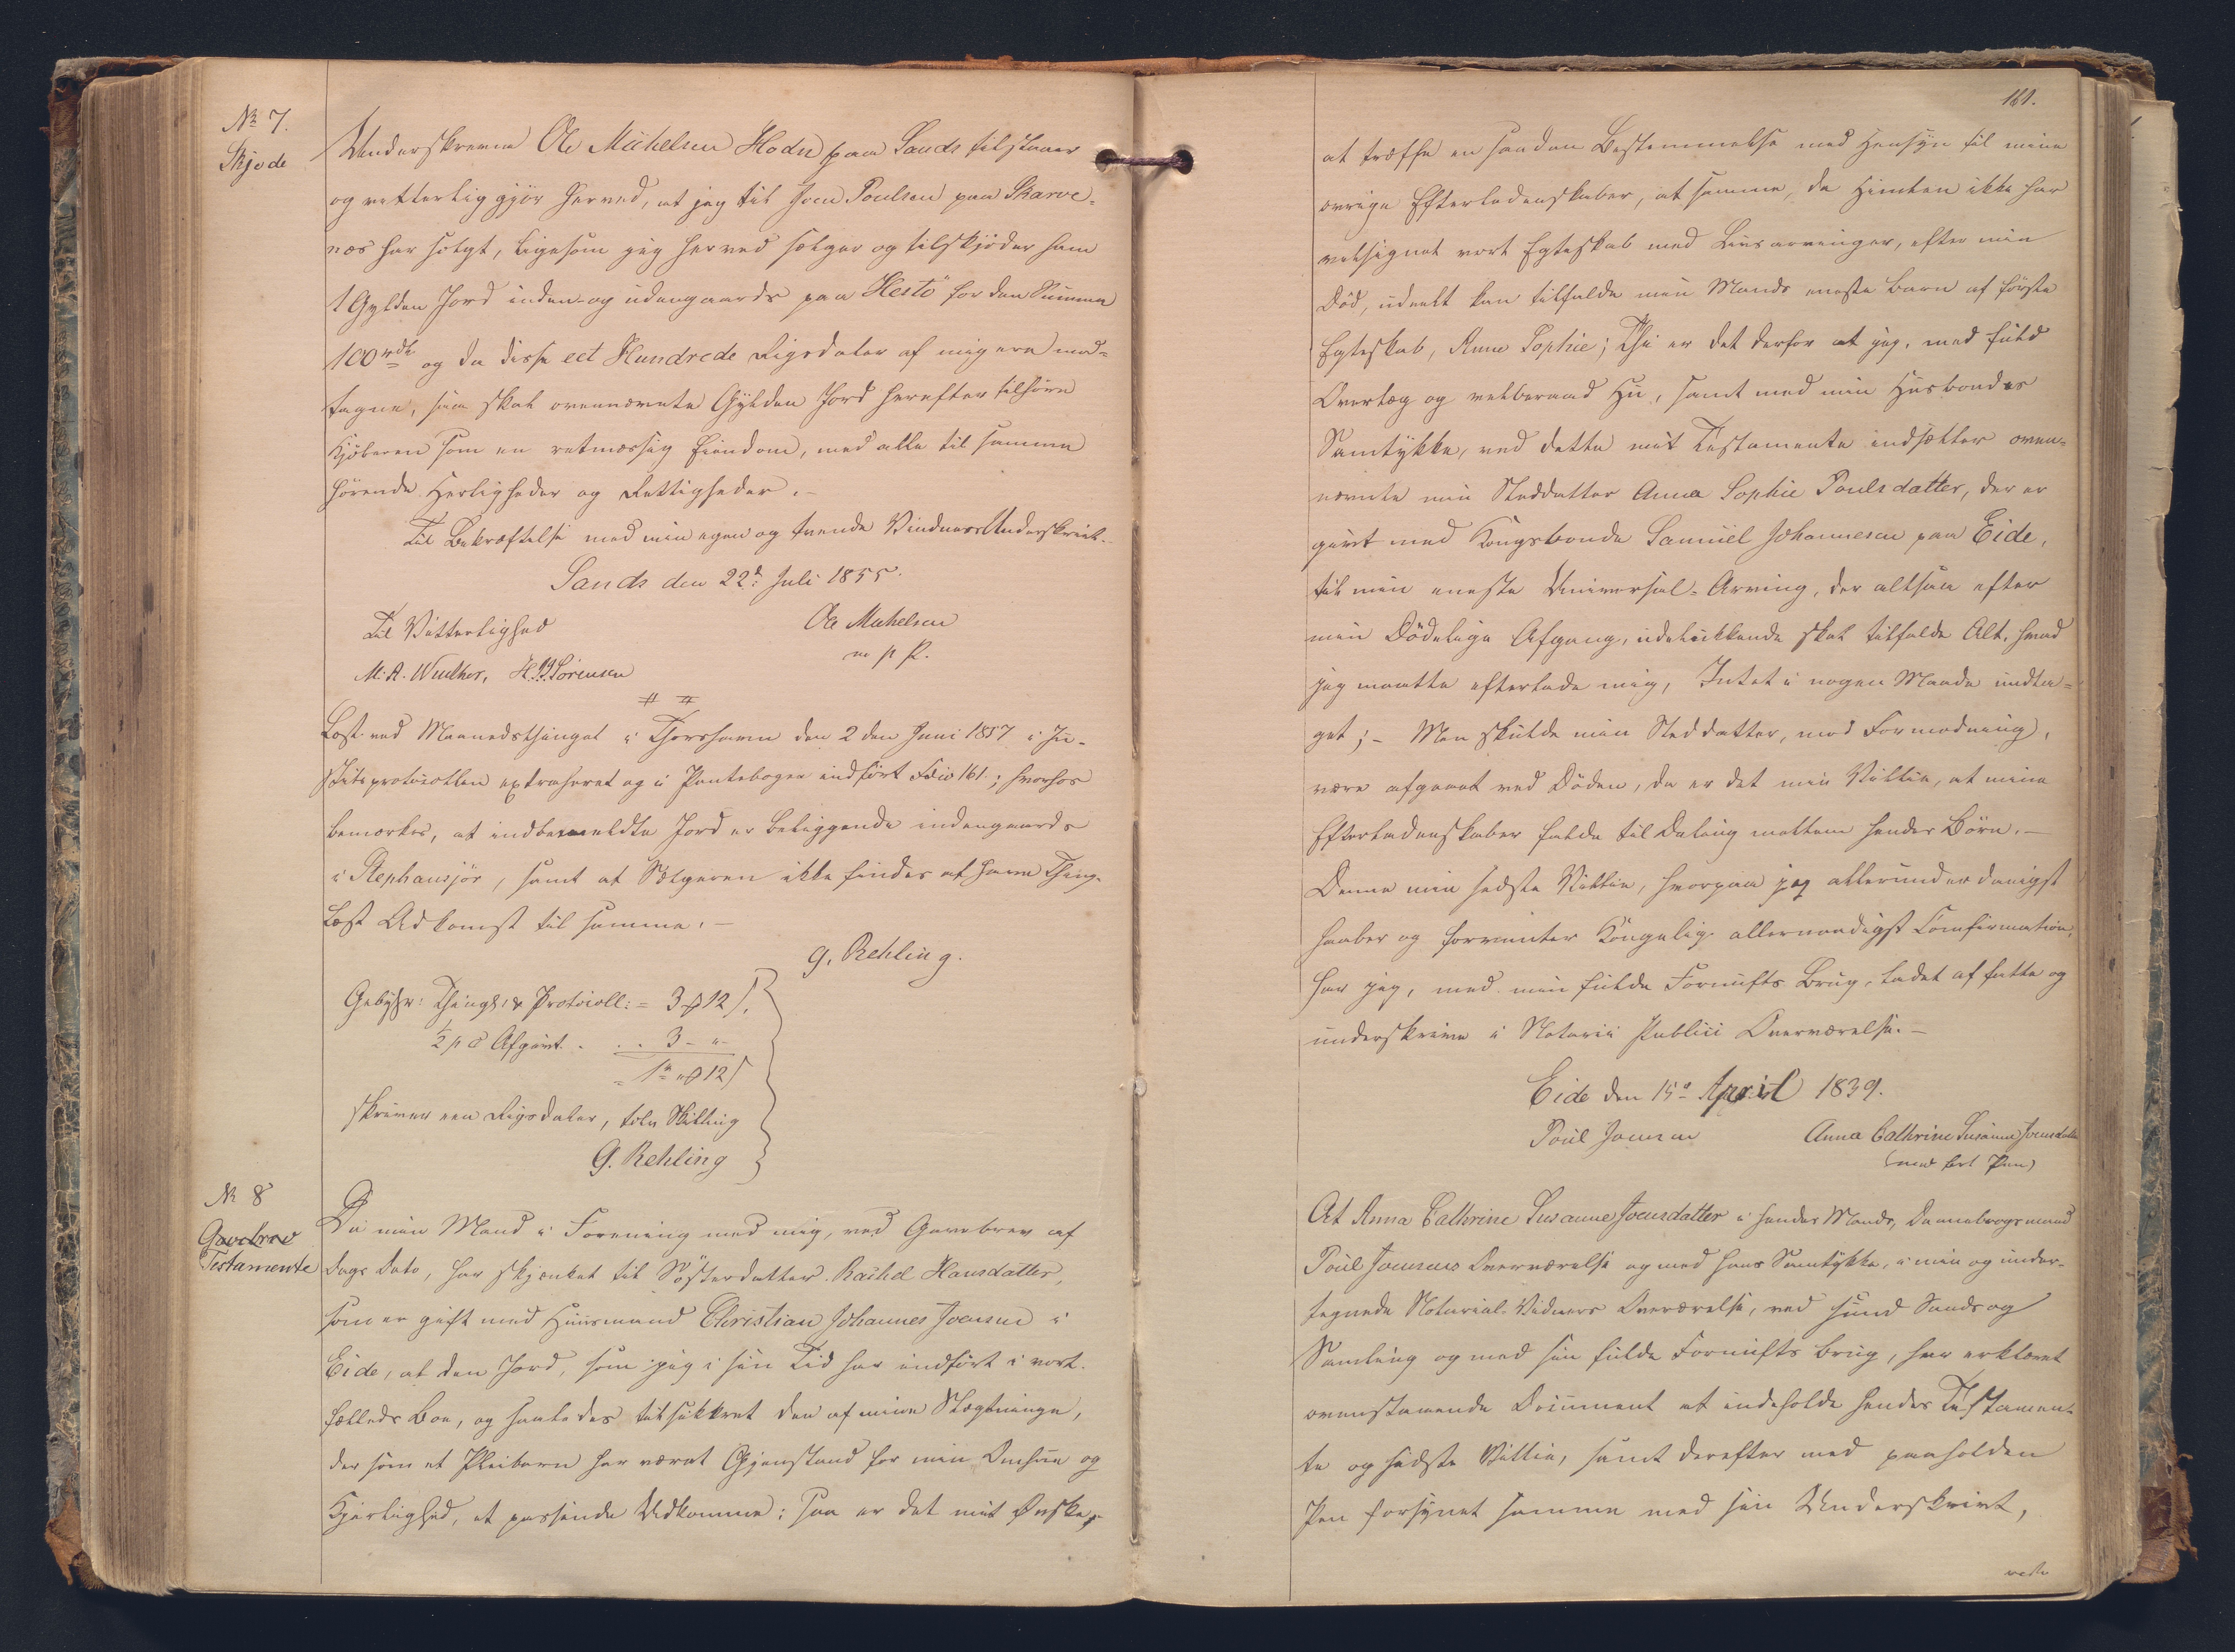 No 7.
Skjøde
Underskrevne Ole Michelsen Hoden paa Sands tilstaaer
og vitterliggjør herved, at jeg til Joen Poulsen paa Skarve-
næs har solgt, ligesom jeg herved sælger og tilskjøder ham
1 Gylden Jord inden- og udengaards paa "Hestö" for den Summa
100 rdl og da disse eet Hundrede Rigsdaler af mig ere mod-
tagne, saa skal ovennævnte Gylden Jord herefter tilhøre
Kjøberen som en retmæssig Eiendom, med alle til samme
hørende Herligheder og Rettigheder.-
Til Bekræftelse med min egen og tvende Vidners Underskrivt.
Sands den 22d Juli 1855.
Til Vitterlighed
Ole Michelsen
M. A. Winther, H. B. Sörensen
m p P.
# #
Læst ved Maanedsthinget i Thorshavn den 2den Juni 1857 i Ju-
stitsprotocollen extraheret og i Pantebogen indført Folio 161.; hvorhos
bemærkes, at indbemeldte Jord er beliggende indengaards
i Stephansjör, samt at Sælgeren ikke findes at have Thing-
læst Adkomst til samme.-
G. Rehling.
Gebyhr: Thingl. & Protocoll: = 3 ₰ 12 ʃ.
½ p C Afgivt. . . . 3 - " -
= 1 rd " ₰ 12 ʃ
skriver een Rigsdaler, tolv Skilling
G. Rehling
No 8
Gavebrev
Testamente
Da min Mand i Forening med mig, ved Gavebrev af
Dags Dato, har skjænket til Søsterdatter Rachel Hansdatter,
som er gift med Huusmand Christian Johannes Joensen i
Eide, at den Jord, som jeg i sin Tid har indført i vort
fælleds Boe, og saaledes tilsikkret den af mine Slægtninge,
der som et Pleibarn har været Gjenstand for min Omhue og
Kjerlighed, et passende Udkomme: saa er det mit Ønske,
161.
at træffe en saadan Bestemmelse med Hensyn til mine
øvrige Efterladenskaber, at samme, da Himlen ikke har
velsignet vort Egteskab med Livsarvinger, efter min
Død, udeelt kan tilfalde min Mands eneste Barn af første
Egteskab, Anna Sophie; Thi er det derfor at jeg, med fuld
Overlæg og velberaad Hu, samt med min Husbondes
Samtykke, ved dette mit Testamente indsætter oven-
nævnte min Steddatter Anna Sophie Poulsdatter, der er
givt med Kongsbonde Samuel Johannesen paa Eide,
til min eneste Universal-Arving, der altsaa efter
min Dödelige Afgang, udelukkende skal tilfalde Alt, hvad
jeg maatte efterlade mig, Intet i nogen Maade undta-
get;- Men skulde min Steddatter, mod Formodning,
være afgaaet ved Døden, da er det min Villie, at mine
Efterladenskaber falde til Deling mellem hendes Børn.-
Denne min sidste Villie, hvorpaa jeg allerunderdanigst
haaber og forventer Kongelig allernaadigst Confirmation,
har jeg, med min fulde Fornufts Brug, ladet affatte og
underskrive i Notarii Publici Overværelse.-
Eide den 15d April 1839.
Poul Joensen
Anna Cathrine Susanne Joensdatter
(med ført Pen)
At Anna Cathrine Susanne Joensdatter i hendes Mands, Dannebrogsmand
Poul Joensens Overværelse og med hans Samtykke, i min og under-
tegnede Notarial-Vidners Overværelse, ved sund Sands og
Samling og med sin fulde Fornufts Brug, har erklæret
ovenstaaende Document at indeholde hendes Testamen-
te og sidste Villie, samt derefter med paaholden
Pen forsynet samme med sin Underskrivt,